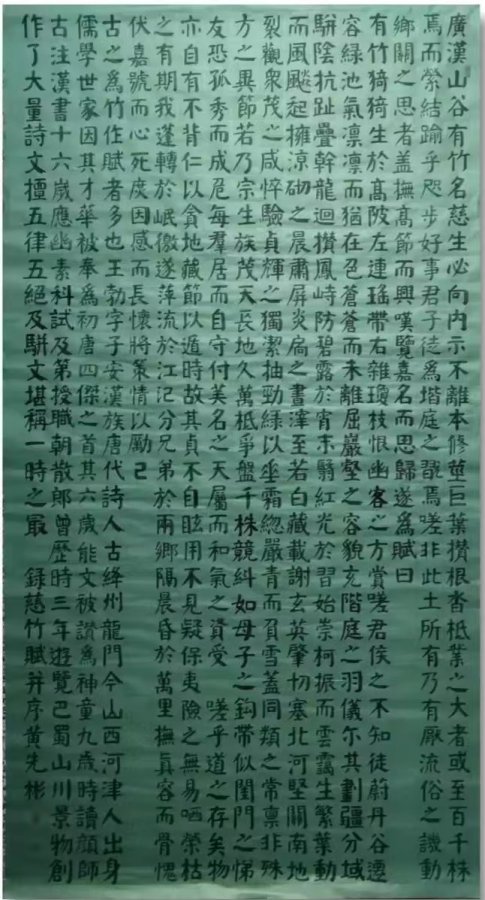 廣漢山谷有竹名慈生必向内示不離本修莖巨葉攢根沓柢葉之大者或至百千株
焉而縈結踰乎咫步好事君子徒為階庭之翫焉嗟非此土所有乃有厭流俗之譏動
鄉關之思者盖撫高節而興嘆覽嘉名而思歸遂為賦曰
有竹猗猗生於高陂左連瑤帶右雜瓊枝恨幽客之方賞嗟君侯之不知徒蔚丹谷遷
容綠池氣凛凛而猶在色蒼蒼而未離屈巖壑之容貌充階庭之羽儀尔其劃疆分域
駢陰抗趾疊幹龍迴攢鳳峙防碧露於宵末翳紅光於習始崇柯振而雲靄生繁葉動
而風飈起擁涼砌之晨肅屏炎扃之書滓至若白藏載謝玄英肇切塞北河堅關南地
裂觀衆茂之咸悴驗貞輝之獨潔抽勁綠以垂霜緫嚴青而負雪蓋同類之常禀非殊
方之異節若乃宗生族茂天長地久萬柢爭盤千株競糾如母子之鈎帶似閨門之悌
友恐孤秀而成危每羣居而自守付美名之天屬而和氣之資受 嗟乎道之存矣物
亦自有不背仁以貪地藏節以遁時故其貞不自眩用不見疑保夷險之無易哂榮枯
之有期我蓬轉於岷徼遂萍流於江汜分兄弟於兩鄉隔晨昏於萬里撫貞容而骨愧
伏嘉號而心死庶因感而長懷將策情以勵己
古之為竹作賦者多也王勃字子安漢族唐代詩人古絳州龍門今山西河津人出身
儒學世家因其才華被奉為初唐四傑之首其六歲能文被讚為神童九歲時讀顔師
古注漢書十六歲應幽素科試及第授職朝散郎曾歷時三年遊覽巴蜀山川景物創
作了大量詩文擅五律五絕及駢文堪稱一時之最 錄慈竹賦并序黃先彬